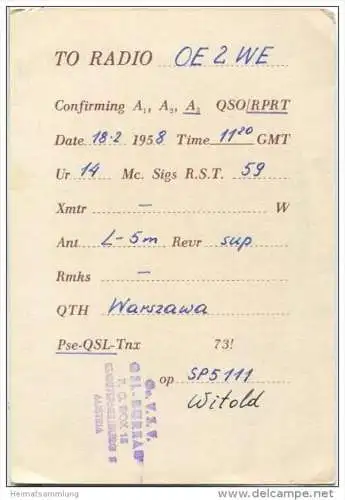 TO RADIO OE 2 WE
Confirming A1, A2, A3 QSO/RPRT
Date 18.2 1958 Time 11 20 GMT
Ur 14 Mc. Sigs R.S.T. 59
Xmtr — W
Ant L-5m Rcvr sup
Rmks —
QTH Warszawa
Pse-QSL-Tnx 73!
op SP5111
Witold
Oe. V. S. V.
QSL-BUREAU
P. O. BOX 12
KLOSTERNEUBURG 2
AUSTRIA
Heimatsammlung
www.delcampe.net